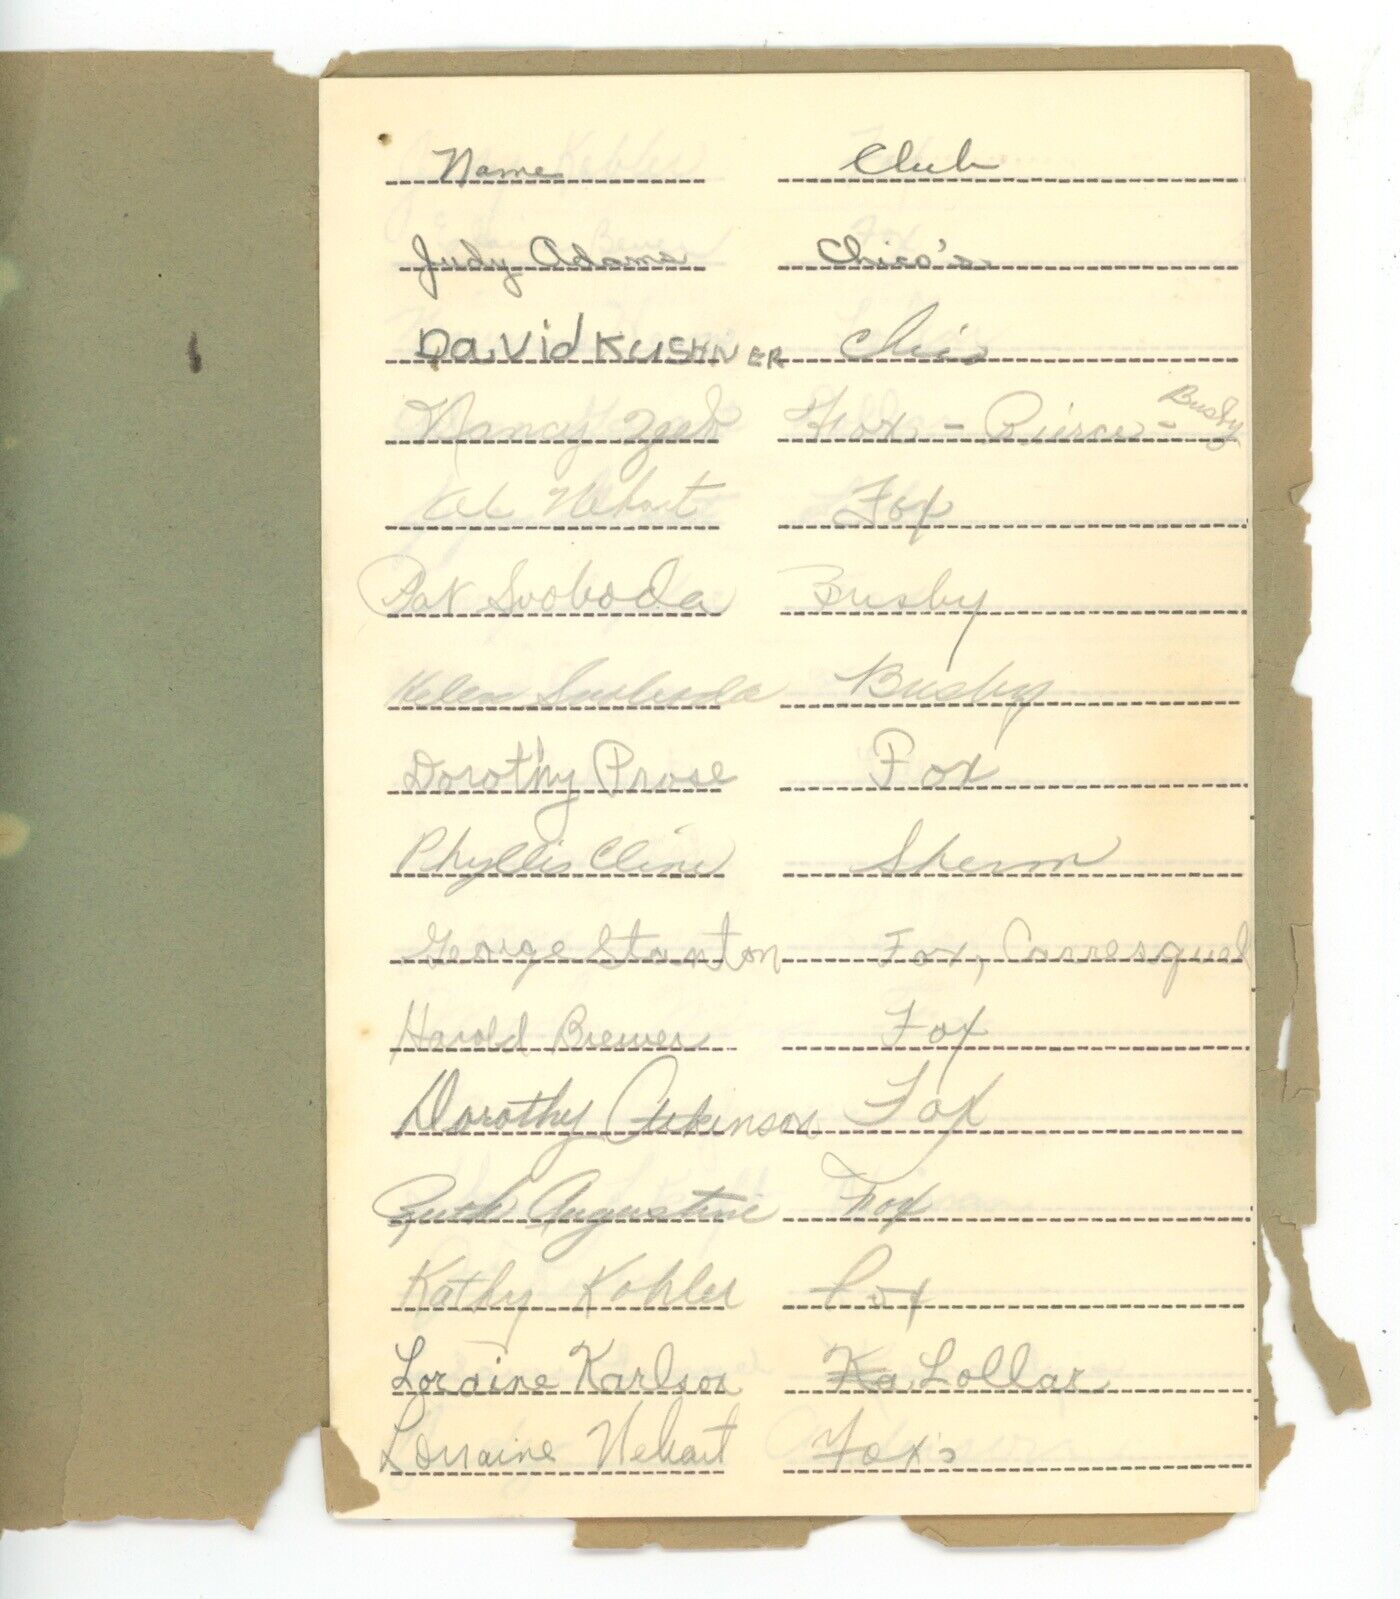 Name Club
Judy Adams Chico's
David KUSHNER Chico
Nancy Fox - Pierce - Busby
Nehart Fox
Pat Svoboda Busby
Helen Svoboda Busby
Dorothy Prose Fox
Phyllis Cline Sherm
George Stanton Fox, Corresquel
Harold Brewer Fox
Dorothy Atkinson Fox
Ruth Augustine Fox
Kathy Kohler Fox
Loraine Karlson Ka Lollar
Lorraine Nehart Fox's